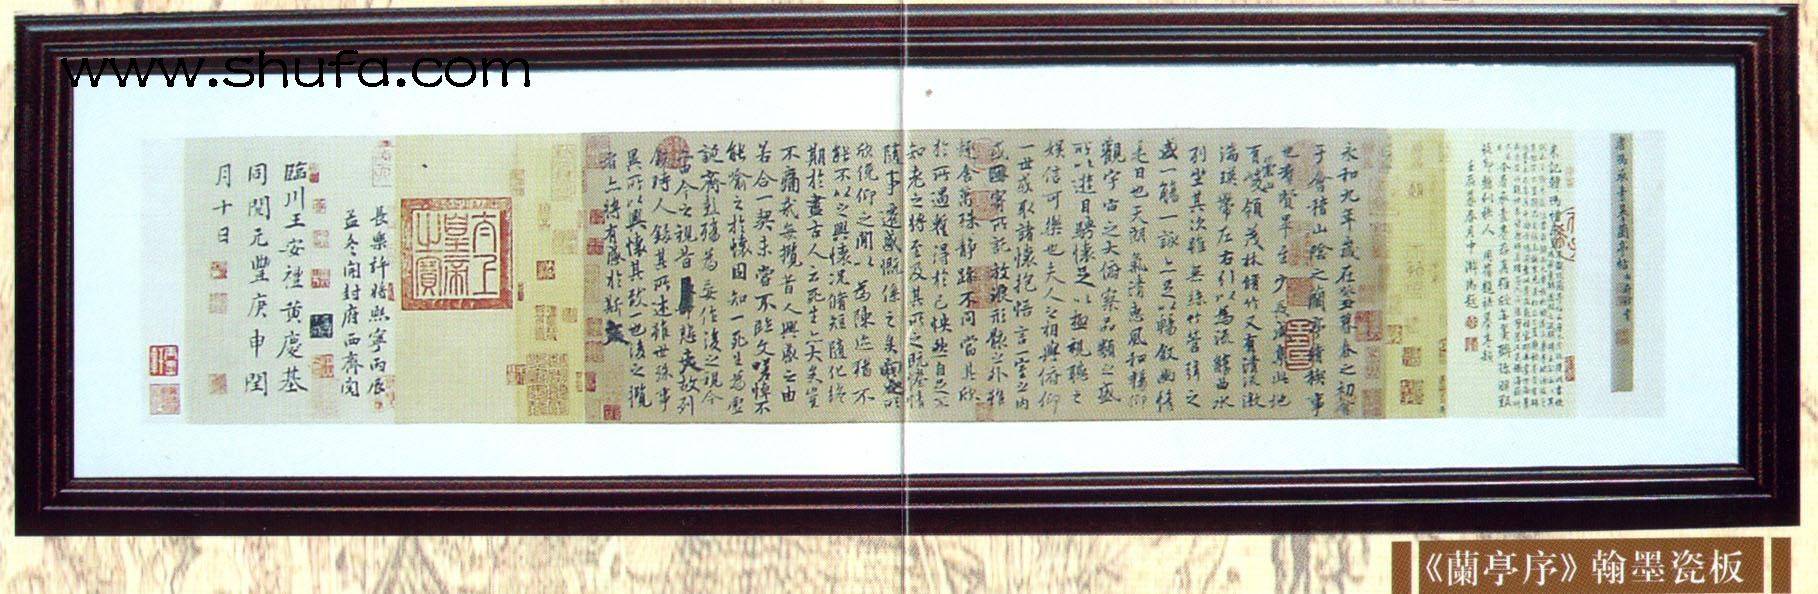 www.shufa.com
唐馮承素摹蘭亭帖
永和九年歲在癸丑暮春之初會
于會稽山陰之蘭亭脩稧事
也羣賢畢至少長咸集此地
有崇山峻領茂林脩竹又有清流激
湍暎帶左右引以為流觴曲水
列坐其次雖無絲竹管弦之
盛一觴一詠亦足以暢敘幽情
是日也天朗氣清惠風和暢仰
觀宇宙之大俯察品類之盛
所以遊目騁懷足以極視聽之
娛信可樂也夫人之相與俯仰
一世或取諸懷抱悟言一室之內
或因寄所託放浪形骸之外雖
趣舍萬殊靜躁不同當其欣
於所遇蹔得於己怏然自足不
知老之將至及其所之既惓情
隨事遷感慨係之矣向之所
欣俛仰之閒以為陳迹猶不
能不以之興懷況脩短隨化終
期於盡古人云死生亦大矣豈
不痛哉每攬昔人興感之由
若合一契未嘗不臨文嗟悼不
能喻之於懷固知一死生為虛
誕齊彭殤為妄作後之視今
亦由今之視昔悲夫故列
敘時人錄其所述雖世殊事
異所以興懷其致一也後之攬
者亦將有感於斯文
太上皇帝之寶
長樂許將熙寧丙辰
孟冬開封府西齋閱
臨川王安禮黃慶基
同閱元豐庚申閏
月十日
《蘭亭序》翰墨瓷板